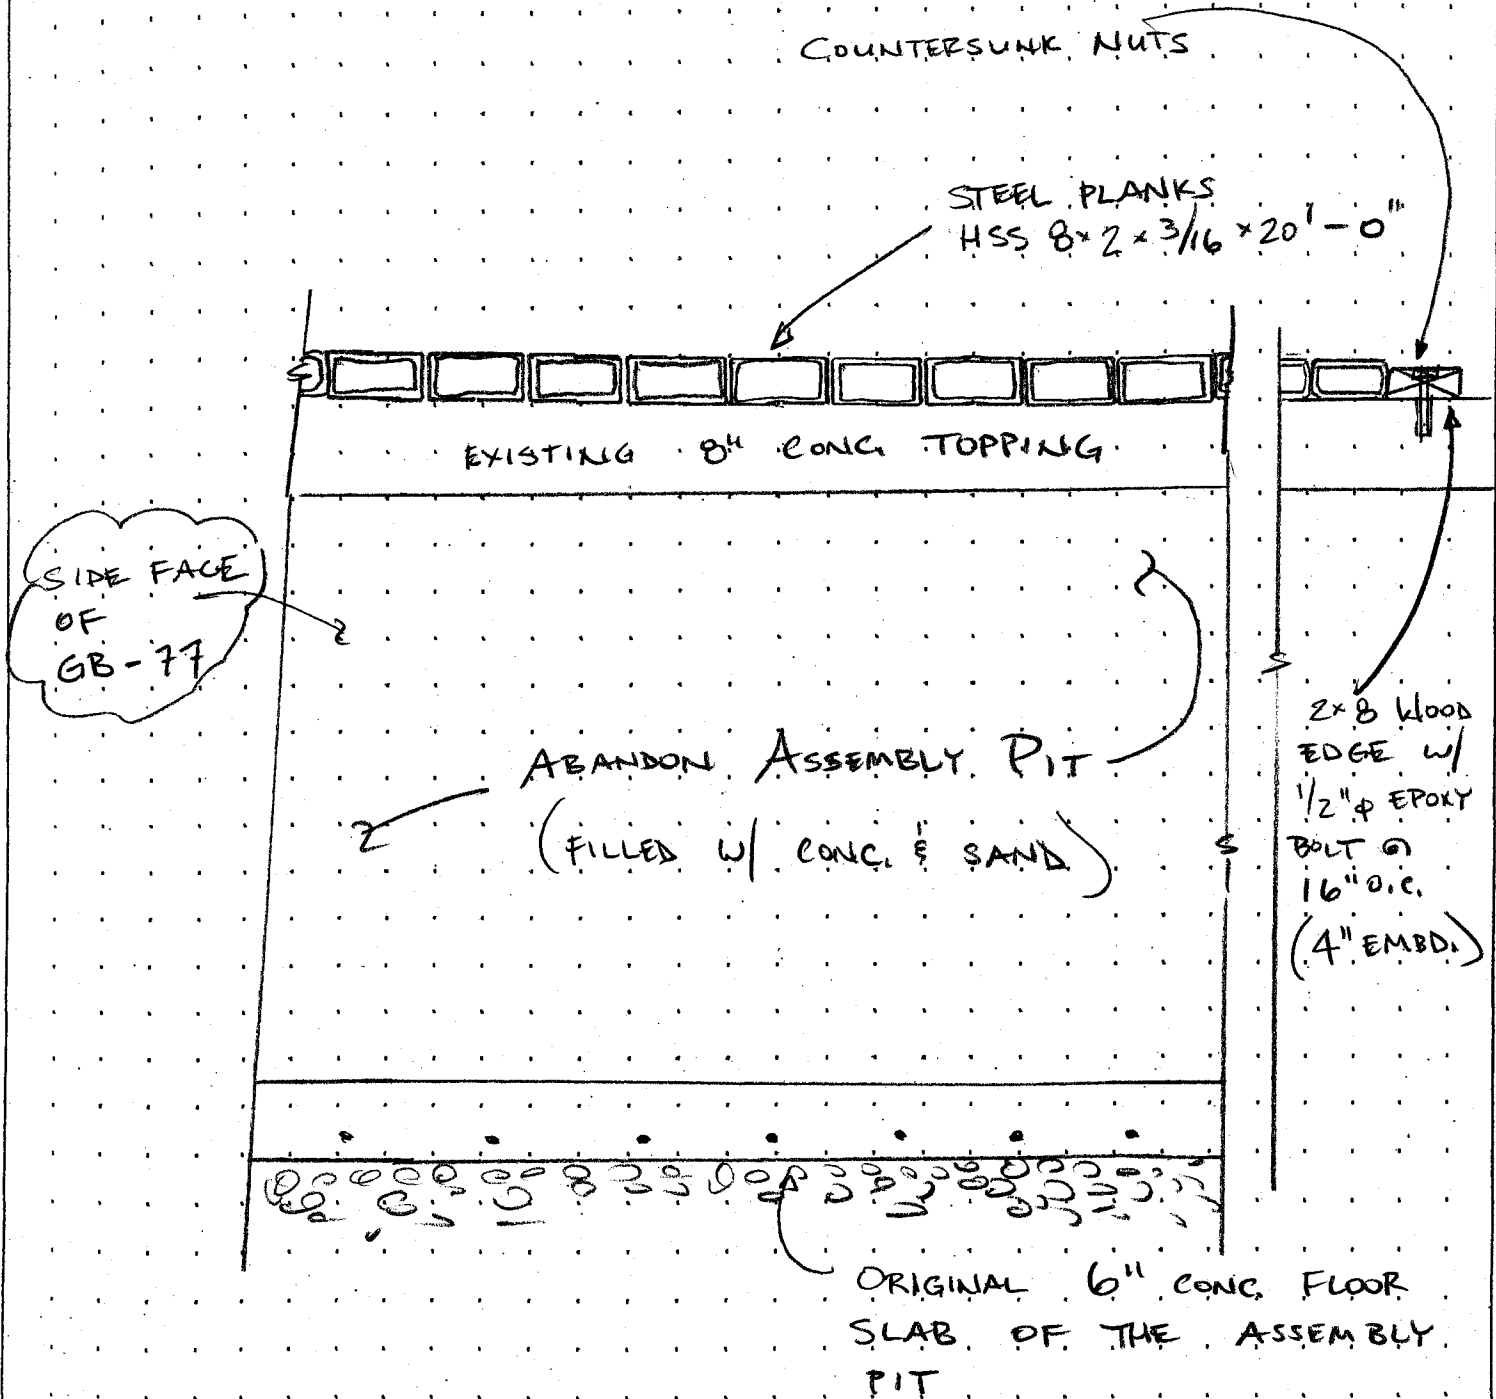 COUNTERSUNK NUTS
STEEL PLANKS
HSS 8x2x3/16x20'-0"
EXISTING 8" CONC TOPPING
SIDE FACE
OF
GB-77
ABANDON ASSEMBLY PIT
(FILLED W/ CONC. & SAND)
2x8 WOOD
EDGE W/
1/2"φ EPOXY
BOLT @
16" O.C.
(4" EMBD.)
ORIGINAL 6" CONC FLOOR
SLAB OF THE ASSEMBLY
PIT